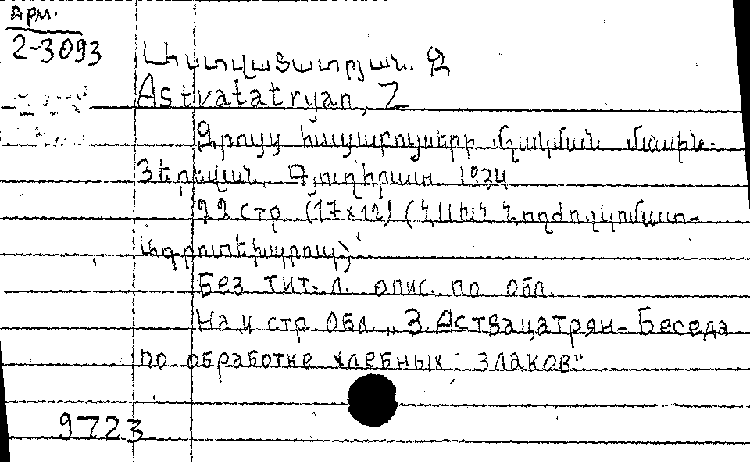 Арм.
2-3093
Աստվածատրյան. Զ
Astvatatryan, Z
Զրույց հացաբույսերի մշակման մասին.
Յերեվան, Գյուղհրատ 1934
22 стр (17×12) (ՀՍԽՀ Հողժողկոմատ-
Без тит. л. опис. по обл.
На 4 стр обл „З. Аствацатрян - Беседа
по обработке хлебных злаков"
9723